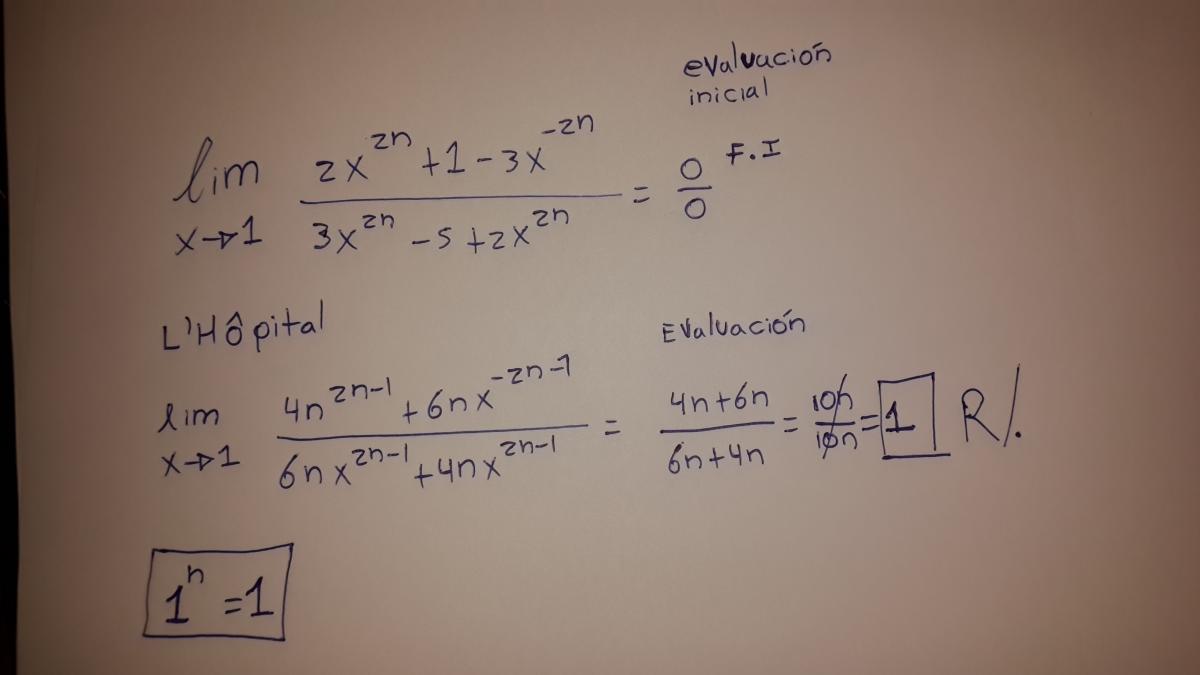 evaluación
inicial
lim x→1 (2x^{2n} + 1 - 3x^{-2n}) / (3x^{2n} - 5 + 2x^{2n}) = 0/0 F.I
L'Hôpital
Evaluación
lim x→1 (4n^{2n-1} + 6nx^{-2n-1}) / (6nx^{2n-1} + 4nx^{2n-1}) = (4n+6n) / (6n+4n) = 10n/10n = 1 R/.
1^n = 1